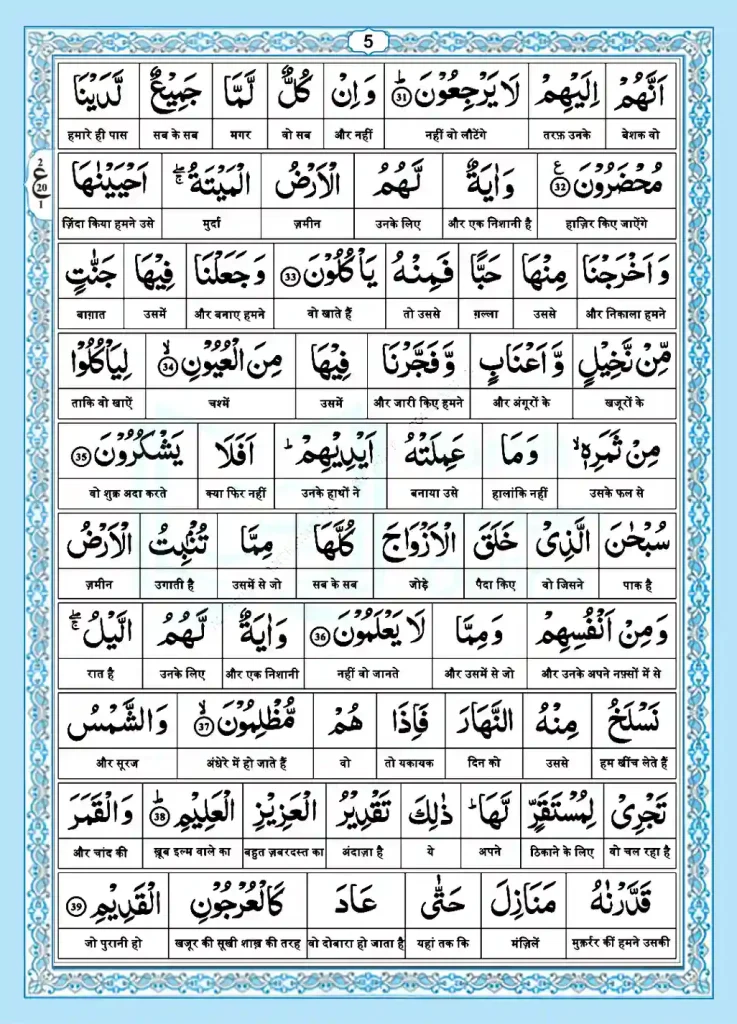 5
اَنَّهُمْ اِلَيْهِمْ لَا يَرْجِعُوْنَ ؕ 31 وَ اِنْ كُلٌّ لَّمَّا جَمِيْعٌ لَّدَيْنَا
बेशक वो तरफ़ उनके नहीं वो लौटेंगे और नहीं वो सब मगर सब के सब हमारे ही पास
2
ع
20
1
مُحْضَرُوْنَ ع 32 وَاٰيَةٌ لَّهُمُ الْاَرْضُ الْمَيْتَةُ ۖۚ اَحْيَيْنٰهَا
हाज़िर किए जाऐंगे और एक निशानी है उनके लिए ज़मीन मुर्दा ज़िंदा किया हमने उसे
وَ اَخْرَجْنَا مِنْهَا حَبًّا فَمِنْهُ يَاْكُلُوْنَ 33 وَ جَعَلْنَا فِيْهَا جَنّٰتٍ
और निकाला हमने उससे ग़ल्ला तो उससे वो खाते हैं और बनाए हमने उसमें बाग़ात
مِّنْ نَّخِيْلٍ وَّ اَعْنَابٍ وَّ فَجَّرْنَا فِيْهَا مِنَ الْعُيُوْنِ ۙ 34 لِيَاْكُلُوْا
खजूरों के और अंगूरों के और जारी किए हमने उसमें चश्में ताकि वो खाऐं
مِنْ ثَمَرِهٖ ۙ وَمَا عَمِلَتْهُ اَيْدِيْهِمْ ؕ اَفَلَا يَشْكُرُوْنَ 35
उसके फल से हालांकि नहीं बनाया उसे उनके हाथों ने क्या फिर नहीं वो शुक्र अदा करते
سُبْحٰنَ الَّذِيْ خَلَقَ الْاَزْوَاجَ كُلَّهَا مِمَّا تُنْۢبِتُ الْاَرْضُ
पाक है वो जिसने पैदा किए जोड़े सब के सब उसमें से जो उगाती है ज़मीन
وَ مِنْ اَنْفُسِهِمْ وَمِمَّا لَا يَعْلَمُوْنَ 36 وَاٰيَةٌ لَّهُمُ الَّيْلُ ۖۚ
और उनके अपने नफ़्सों में से और उसमें से जो नहीं वो जानते और एक निशानी उनके लिए रात है
نَسْلَخُ مِنْهُ النَّهَارَ فَاِذَا هُمْ مُّظْلِمُوْنَ ۙ 37 وَالشَّمْسُ
हम खींच लेते हैं उससे दिन को तो यकायक वो अंधेरे में हो जाते हैं और सूरज
تَجْرِيْ لِمُسْتَقَرٍّ لَّهَا ؕ ذٰلِكَ تَقْدِيْرُ الْعَزِيْزِ الْعَلِيْمِ ؕ 38 وَالْقَمَرَ
वो चल रहा है ठिकाने के लिए अपने ये अंदाज़ा है बहुत ज़बरदस्त का ख़ूब इल्म वाले का और चांद की
قَدَّرْنٰهُ مَنَازِلَ حَتّٰى عَادَ كَالْعُرْجُوْنِ الْقَدِيْمِ 39
मुक़र्रर कीं हमने उसकी मंज़िलें यहां तक कि वो दोबारा हो जाता है खजूर की सूखी शाख़ की तरह जो पुरानी हो